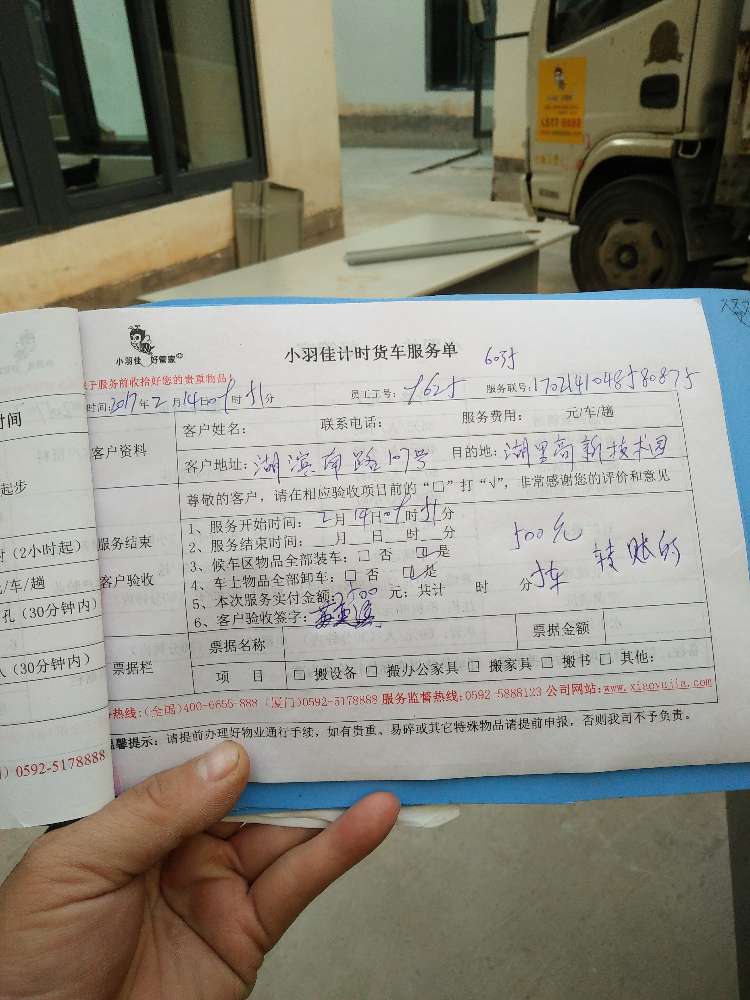 小羽佳 好管家
小羽佳计时货车服务单
于服务前收拾好您的贵重物品!
时间: 2017年2月14日09时51分 员工工号: 服务联号:
客户资料
客户姓名: 联系电话: 服务费用: 元/车/趟
客户地址: 湖滨南路107号 目的地: 湖里高新技术园
服务结束
客户验收
尊敬的客户，请在相应验收项目前的“□”打“√”，非常感谢您的评价和意见
1、服务开始时间: 2月14日09时51分
2、服务结束时间: 月 日 时 分
3、候车区物品全部装车: □ 否 □ 是
4、车上物品全部卸车: □ 否 □ 是
5、本次服务实付金额: 500 元; 共计 时 分
6、客户验收签字:
500元
转账
票据栏
票据名称 票据金额
项 目 □ 搬设备 □ 搬办公家具 □ 搬家具 □ 搬书 □ 其他:
热线:(全国)400-6655-888 (厦门)0592-5178888 服务监督热线:0592-5888123 公司网站:www.xiaoyujia.com
温馨提示: 请提前办理好物业通行手续，如有贵重、易碎或其它特殊物品请提前申报，否则我司不予负责。
时间
起步
(2小时起)
元/车/趟
孔(30分钟内)
人(30分钟内)
0592-5178888